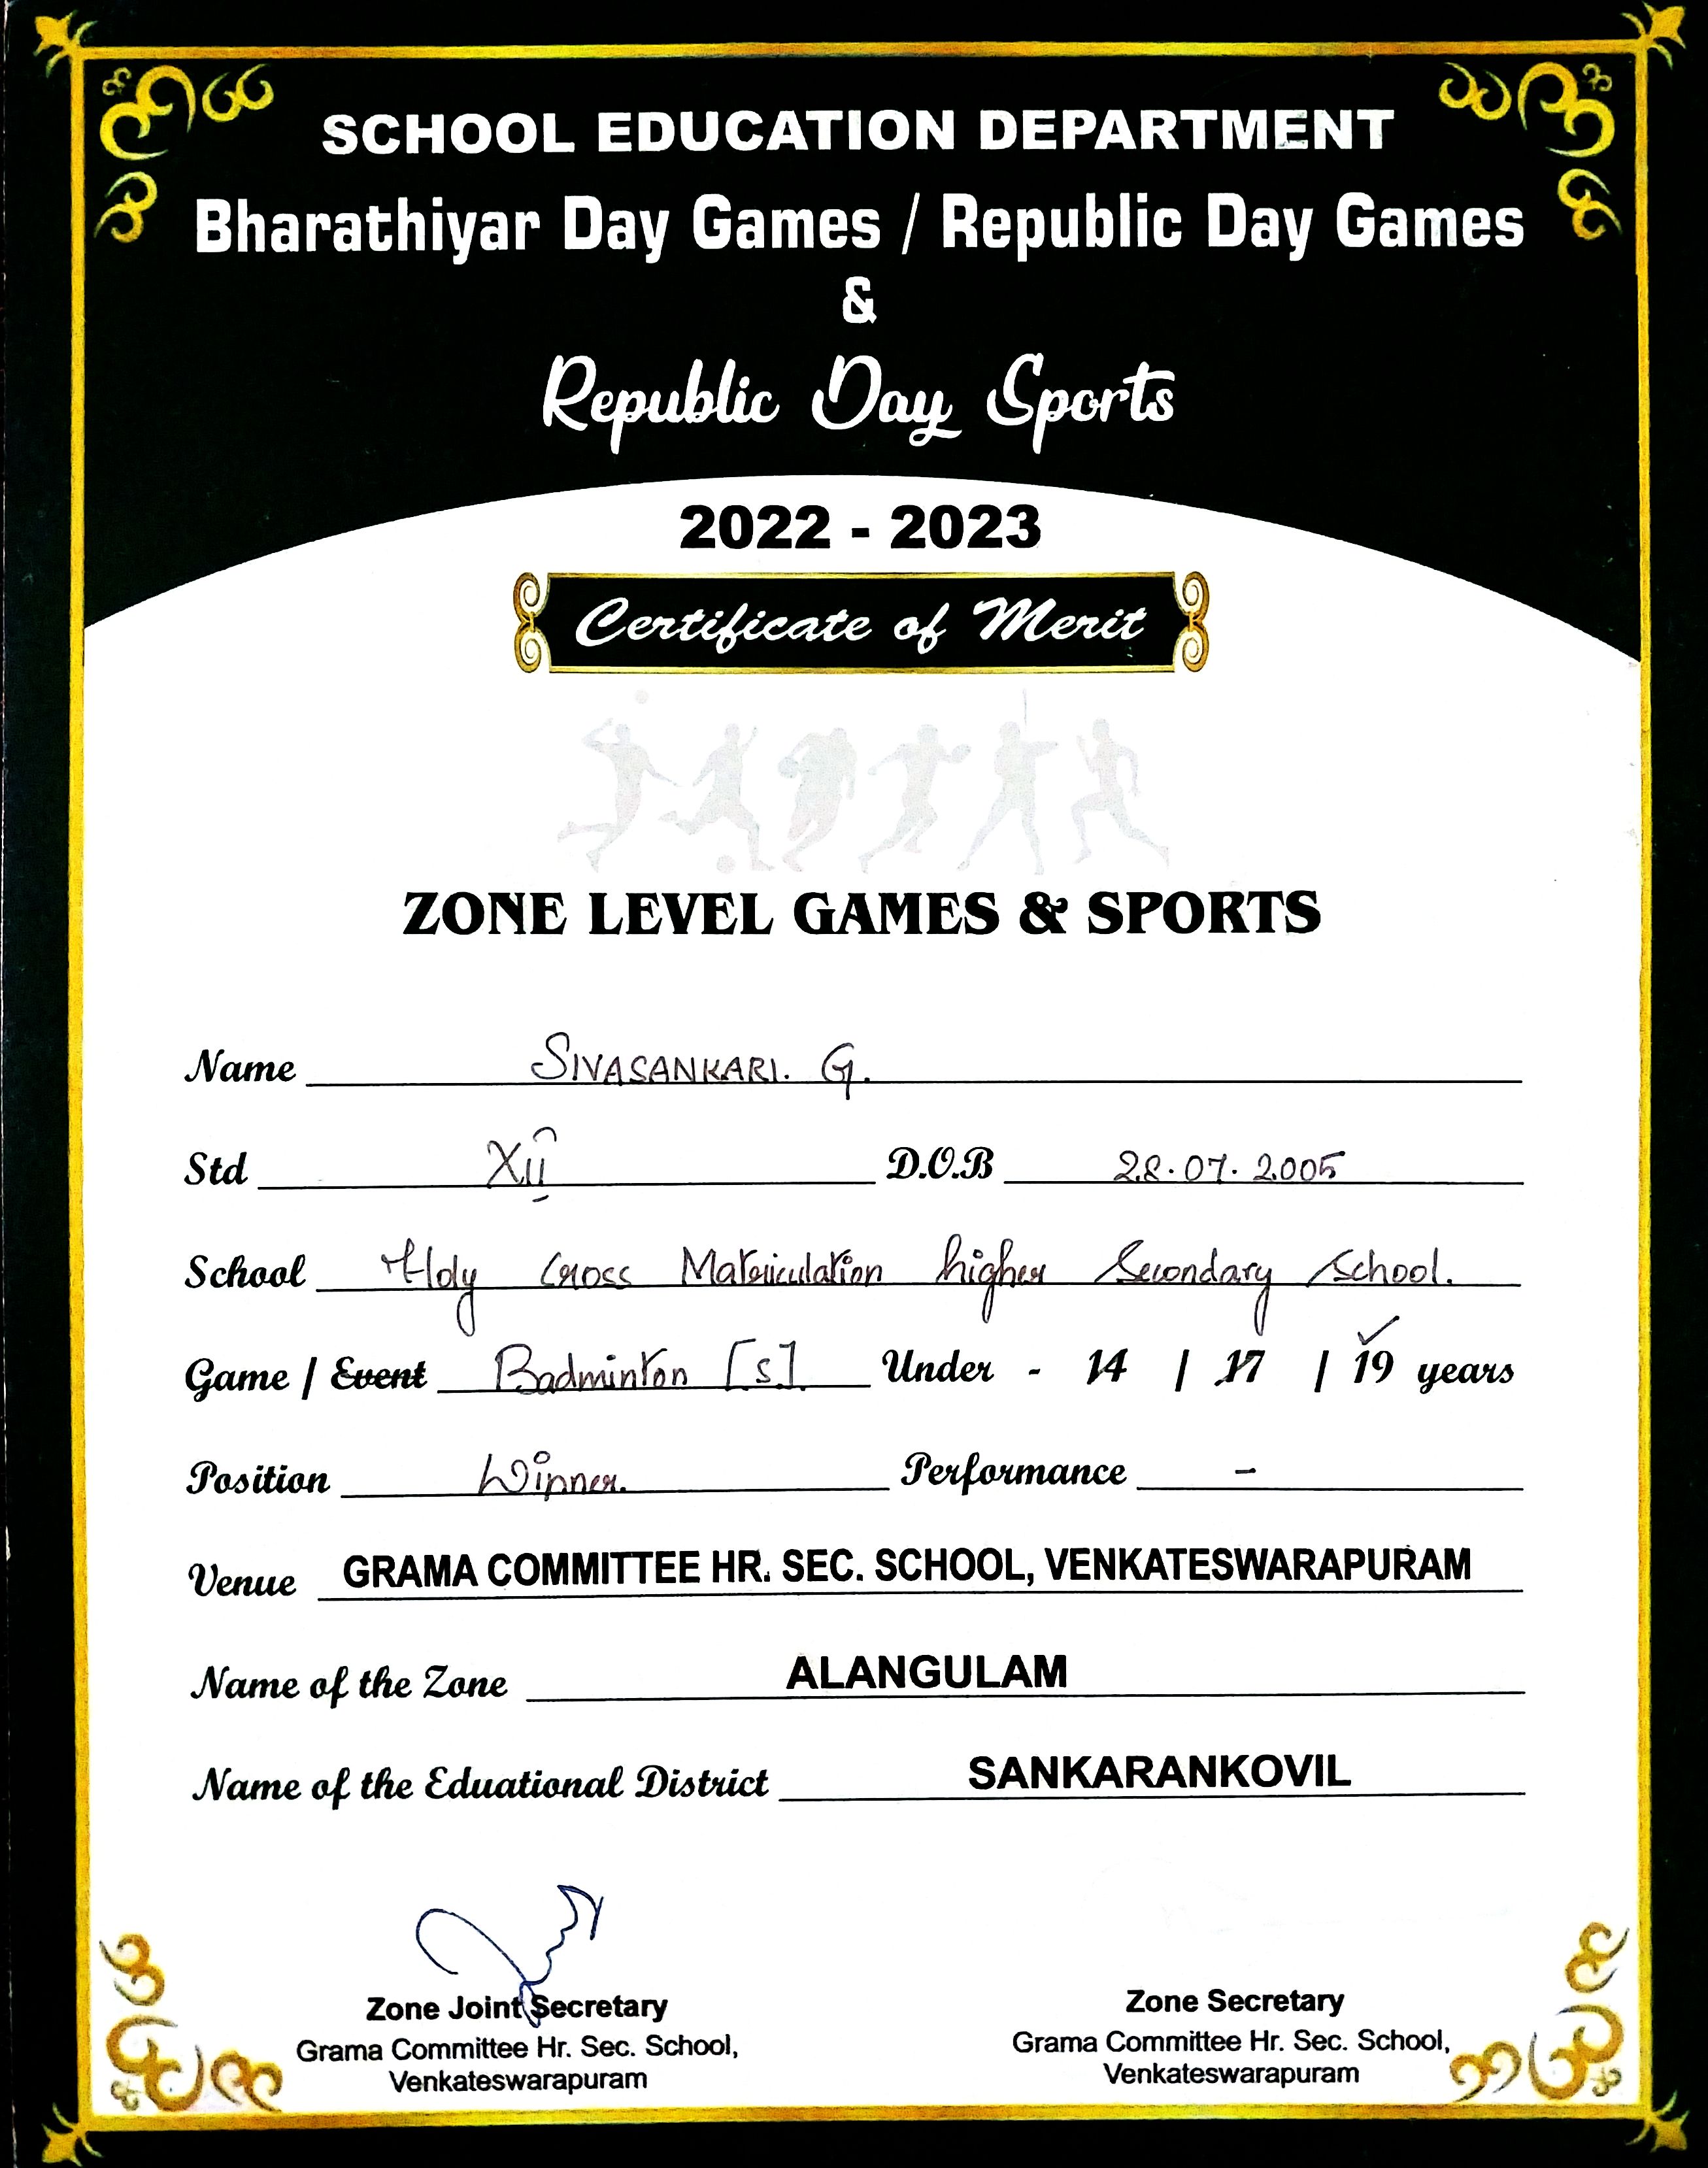 SCHOOL EDUCATION DEPARTMENT
Bharathiyar Day Games / Republic Day Games
&
Republic Day Sports
2022 - 2023
Certificate of Merit
ZONE LEVEL GAMES & SPORTS
Name SIVASANKARI. G.
Std XII D.O.B 28.07.2005
School Holy Cross Matriculation higher Secondary School.
Game / Event Badminton [S] Under - 14 / 17 / 19 years
Position Winner. Performance -
Venue GRAMA COMMITTEE HR. SEC. SCHOOL, VENKATESWARAPURAM
Name of the Zone ALANGULAM
Name of the Eduational District SANKARANKOVIL
Zone Joint Secretary
Grama Committee Hr. Sec. School,
Venkateswarapuram
Zone Secretary
Grama Committee Hr. Sec. School,
Venkateswarapuram